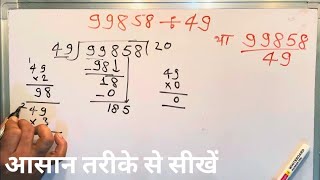 99858 ÷ 49
या 99858
49
49 ) 99858 ( 20
- 98↓
18
- 0
185
49
× 2
98
49
× 3
49
× 0
0
आसान तरीके से सीखें